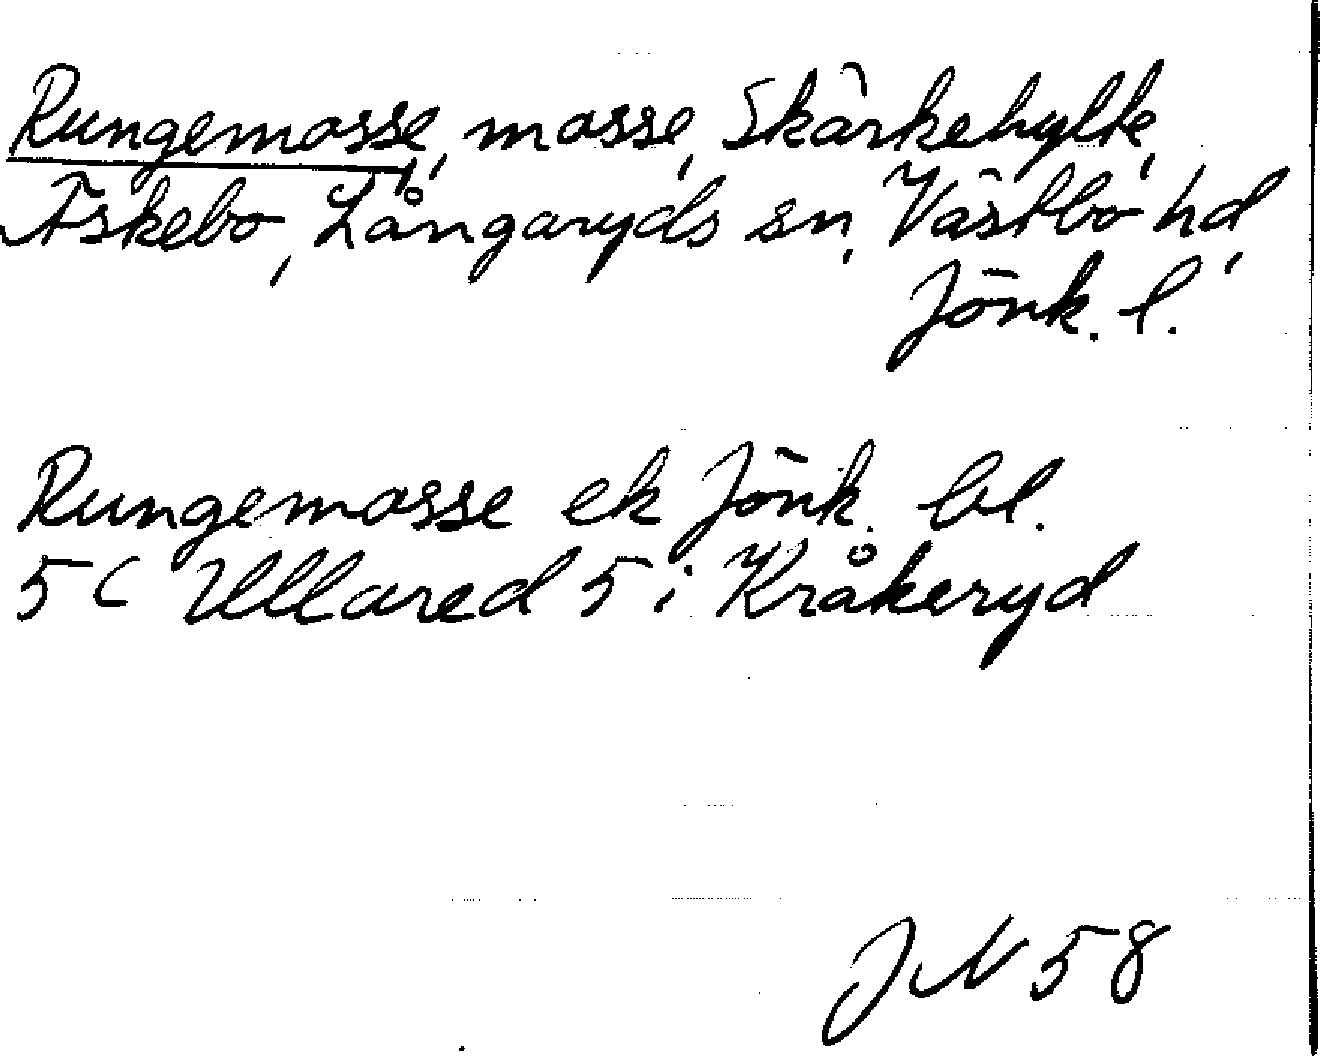 Rungemosse, mosse, Skärkehylte,
Äskebo, Långaryds sn, Västbo hd,
Jönk. l.
Rungemosse ek Jönk. bl.
5C Ullared 5 i Kråkeryd
JN 58